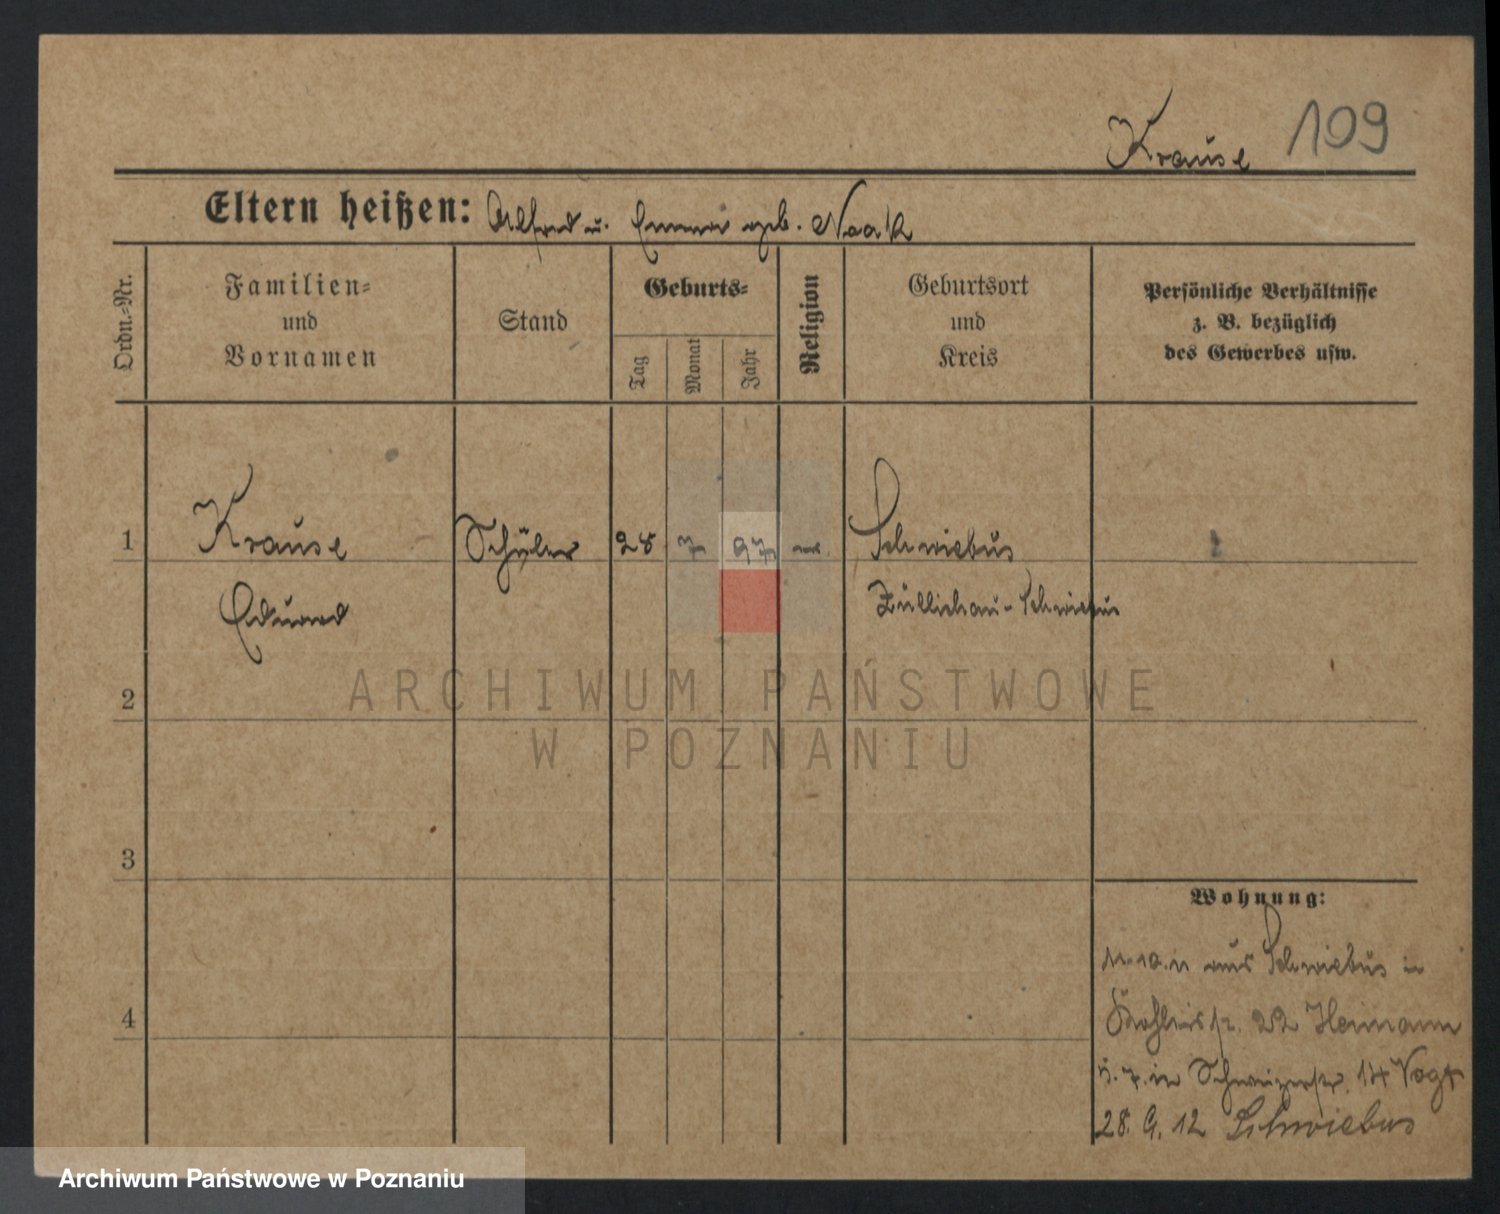 Krause 109
Eltern heißen: Alfred u. Emma geb. Noack
Ordn.-Nr.
Familien-
und
Vornamen
Stand
Geburts-
Tag
Monat
Jahr
Religion
Geburtsort
und
Kreis
Persönliche Verhältnisse
z. B. bezüglich
des Gewerbes usw.
1 Krause Schüler 28 7 97 Schwiebus
Eduard Züllichau-Schwiebus
2
3
4
ARCHIWUM PAŃSTWOWE
W POZNANIU
Wohnung:
11.10.11 aus Schwiebus in
22 Heimann
in 14 Vogt
28. 9. 12 Schwiebus
Archiwum Państwowe w Poznaniu